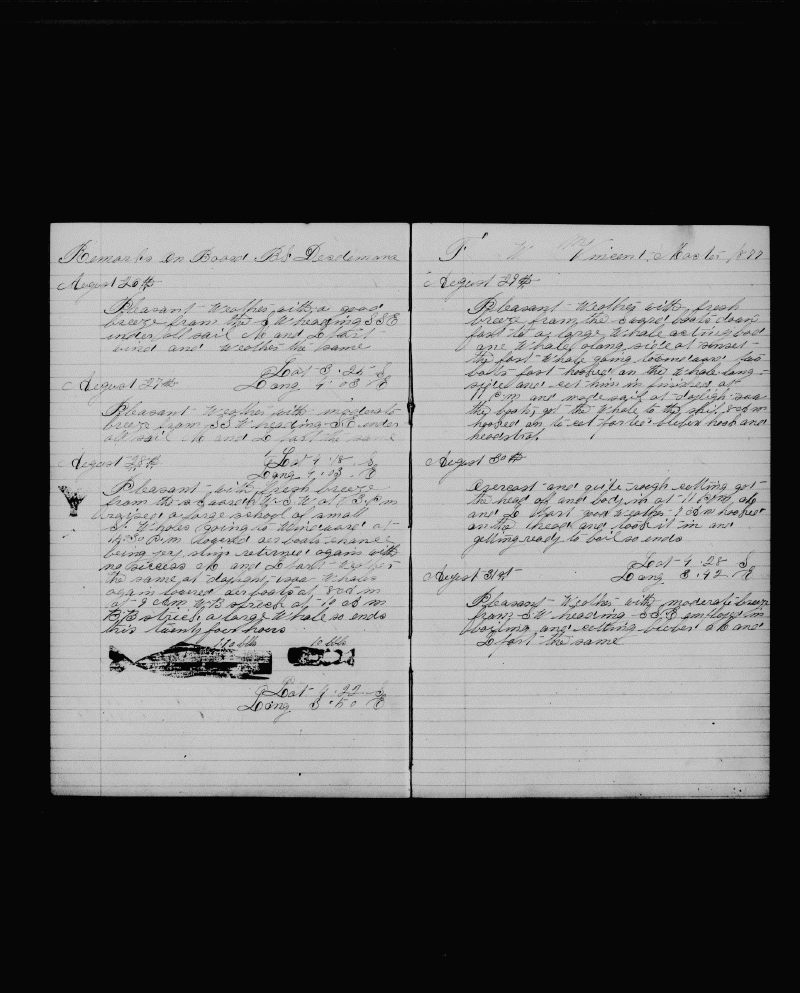 Remarks On Board Bk Desdemona
August 26th
Pleasant Weather with a good
breeze from the S W heading S S E
under all sail M and L Part
wind and Weather the same
Lat 3.25 S
Long 4.03 E
August 27th
Pleasant Weather with moderate
breeze from SSW heading SE under
all sail M and L Part the same
Lat 4.18 S
Long 4.03 E
August 28th
Pleasant with fresh breeze
from the
raised a large school of small
S. Whales going to Windward at
P.m lowered our boats chance
being very slim returned again with
no success M and L Part Weather
the same at daylight saw Whales
again lowered our boats at 8 A m
at 9 A.m W.B struck at 10 A m
B.B struck a large Whale so ends
this twenty four hours
110 bbls 10 bbls
Lat 4.22 S
Long 3.50 E
T W Vincent Master 1877
August 29th
Pleasant Weather with fresh
breeze from the boats down
fast to a large Whale acting bad
one Whale along side at sunset
the fast Whale going to Windward
boats fast hooked on the Whale long
side and cut him in finished at
11 P.m and made sail at dayligh saw
the boats got the Whale to the ship 8 A m
hooked on to cut parted blubber hook and
head strap
August 30th
Overcast and quite rough cutting got
the head of and body in at 11 P.m M
and L Part good Weather 7 A m hooked
on the head and took it in and
getting ready to boil so ends
Lat 4.28 S
Long 3.42 E
August 31st
Pleasant Weather with moderate breeze
from SW heading SSE employed in
boiling and cutting blubber M and
L Part the same